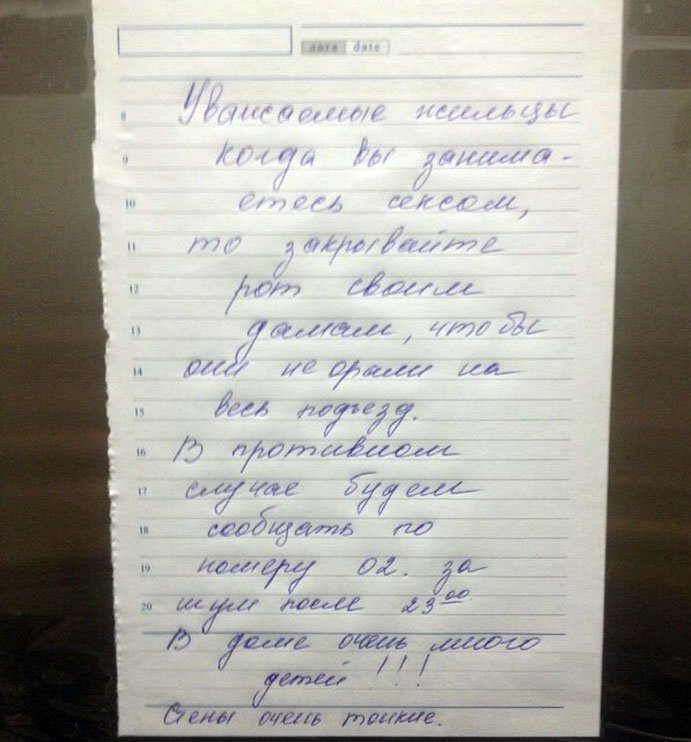 дата date
8 Уважаемые жильцы
9 когда вы занима-
10 етесь сексом,
11 то закрывайте
12 рот своим
13 дамам, чтобы
14 они не орали на
15 весь подъезд.
16 В противном
17 случае будем
18 сообщать по
19 номеру 02. за
20 шум после 23⁰⁰
В доме очень много
детей!!!
Стены очень тонкие.